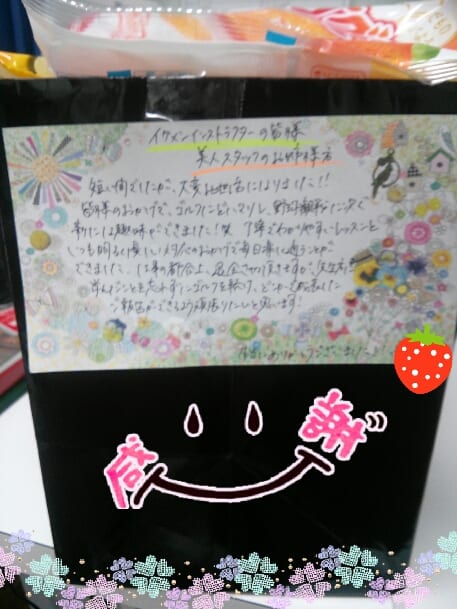 イケメンインストラクターの皆様
美人スタッフのお姉様方
短い間でしたが、大変お世話になりました!!
皆様のおかげで、ゴルフにどハマりし、野球観戦に次ぐ
新たな趣味ができました!笑 丁寧でわかりやすいレッスンと
いつも明るく優しい のおかげで毎日楽しく通うことが
できました。仕事の都合上、退会させて頂きますが、先生方に
学んだことを忘れずにゴルフを続け、
ご報告ができるよう頑張りたいと思います!
ありがとうございました
感謝